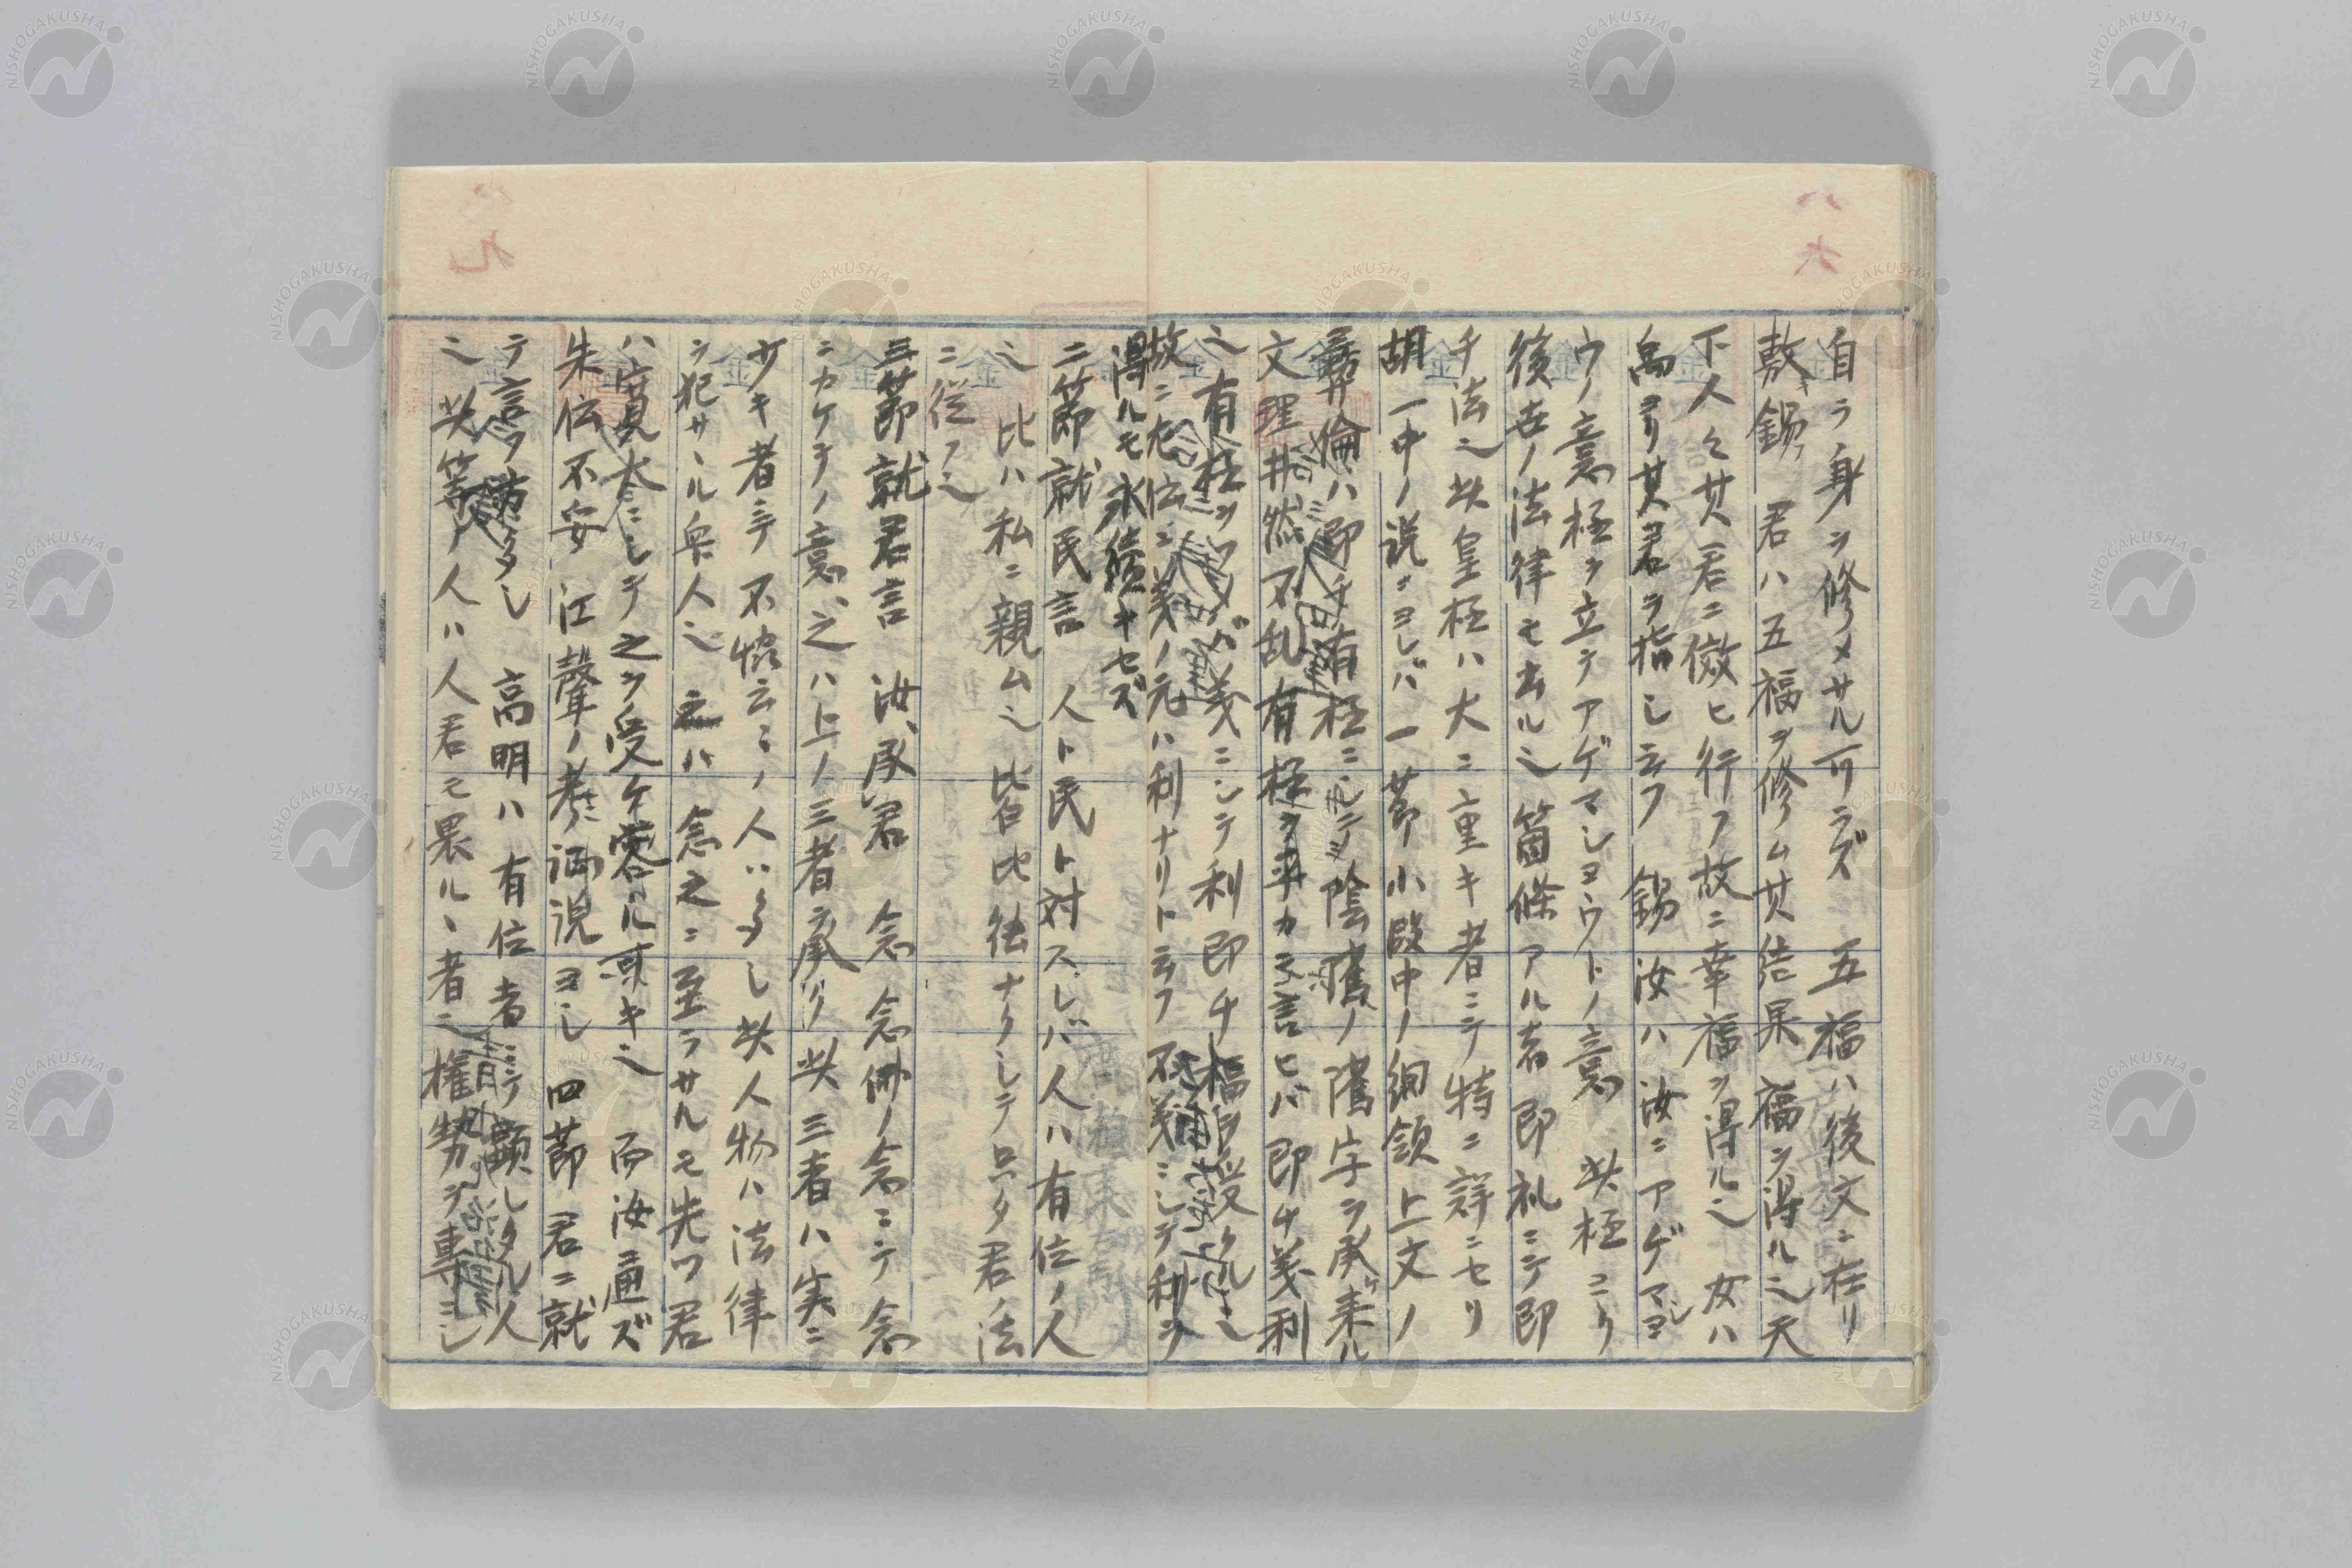 自ラ身ヲ修メサル可ラズ 五福ハ後文ニ在リ
敷キ錫フ 君ハ五福ヲ修ム其結果福ヲ得ル也天
下人々其君ニ傚ヒ行フ故ニ幸福ヲ得ル也 女ハ
禹ヨリ其君ヲ指シ云フ 錫汝ハ汝ニアゲマシヨ
ウノ意極ヲ立テアゲマシヨウトノ意 此極コソ
後世ノ法律モ出ル也 箇條アル者即礼ニテ即
チ法也此皇極ハ大ニ重キ者ニテ特ニ詳ニセリ
胡一中ノ説ニヨレバ一節小段中ノ綱領上文ノ
彝倫ハ即チ有極ニシテ陰隲ノ隲字ヲ承ケ来ル
文理井然不乱有極ヲ事カラ言ヒバ即チ義利
也有極ヲツヅメバ義ニシテ利即チ福ヲ受クル也
故ニ左伝ニ義ノ元ハ利ナリト云フ不義ニシテ利ヲ
得ルモ永續キセズ
二節就民言 人ト民ト対スレバ人ハ有位ノ人
也 比ハ私ニ親ム也 皆比徳ナクシテ只タ君ノ法
ニ従フ也
三節就君言 汝、承君 念 念佛ノ念ニテ念
ニカケテノ意、之ハ上ノ三者ヲ承ク此三者ハ実ニ
少キ者ニテ不協云々ノ人ハ多シ此人物ハ法律
ヲ犯サヽル良人也 ハ念之ニ至ラサルモ先ツ君
ハ寛大ニシテ之ヲ受ケ容ル可キ也 而汝通ズ
朱伝不安 江聲ノ考ヘ ル説ヨシ 四節君ニ就
テ言フ 方多シ 高明ハ有位者ニテ顕レタル人
也 此等ノ人ハ人君モ畏ルヽ者ニ権勢ヲ専ニシ
八六
八九
NISHOGAKUSHA